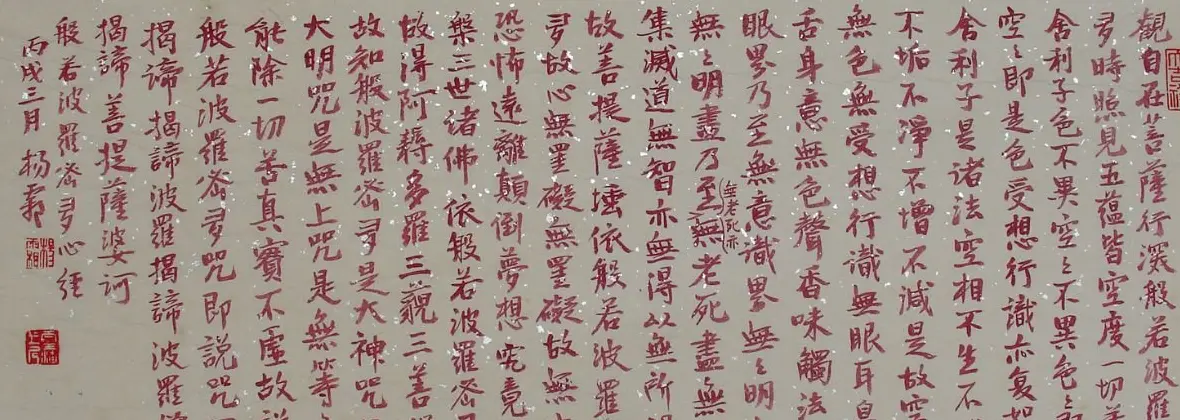 觀自在菩薩行深般若波羅
多時照見五蘊皆空度一切
舍利子色不異空〻不異色〻
空〻即是色受想行識亦復如
舍利子是诸法空相不生不
不垢不淨不增不減是故空
無色無受想行識無眼耳鼻
舌身意無色聲香味觸法
眼界乃至無意識界無〻明
無〻明盡乃至無老死盡無
無老死亦
集滅道無智亦無得以無所
故菩提薩埵依般若波羅
多故心無罣礙無罣礙故無
恐怖遠離顛倒夢想究竟
槃三世诸佛依般若波羅蜜
故得阿耨多羅三藐三菩
故知般波羅蜜多是大神咒
大明咒是無上咒是無等
能除一切苦真實不虛故
般若波羅蜜多咒即説咒
揭諦揭諦波羅揭諦波羅
揭諦菩提薩婆訶
般若波羅蜜多心經
丙戌三月杨霜